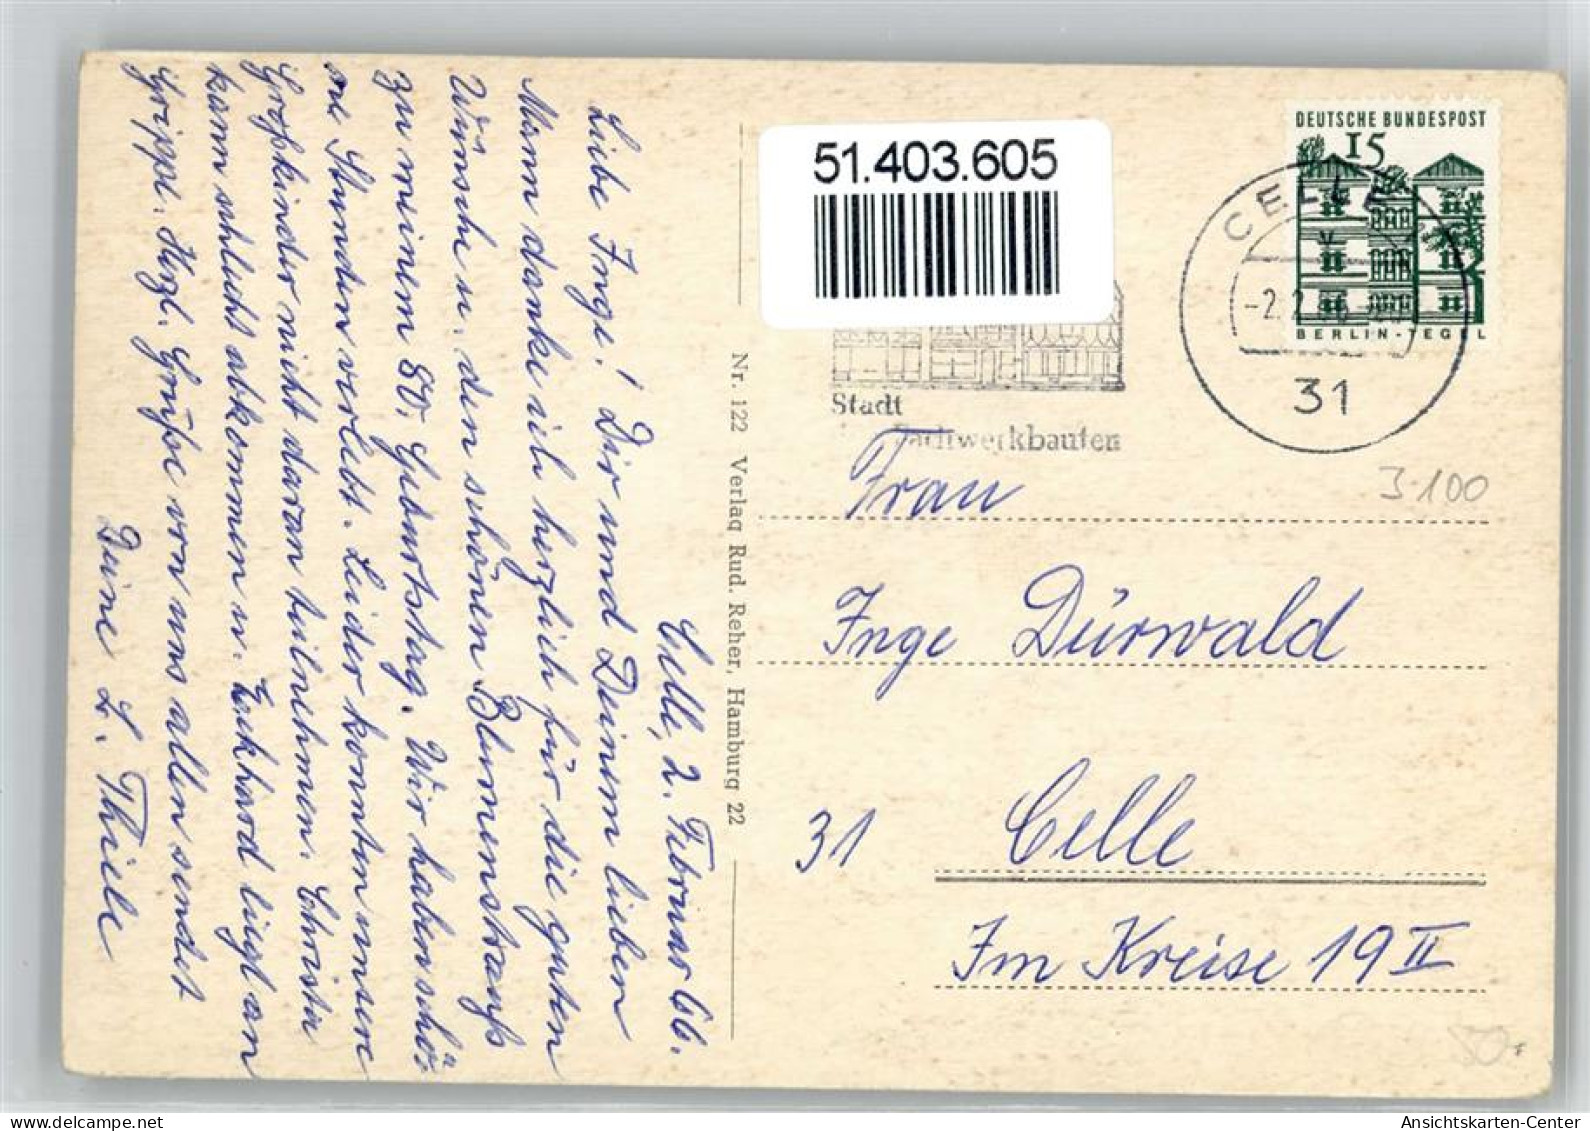 Celle, 2. Februar 66.
Liebe Inge! Dir und Deinem lieben
Mann danke ich herzlich für die guten
Wünsche u. den schönen Blumenstrauß
zu meinem 80. Geburtstag. Wir haben schö-
ne Stunden verlebt. Leider konnten unsere
Großkinder nicht daran teilnehmen. Christa
kann schlecht abkommen u. Eckhard liegt an
Grippe. Herzl. Grüße von uns allen sendet
Deine L. Thiele
Nr. 122 Verlag Rud. Reher, Hamburg 22
51.403.605
DEUTSCHE BUNDESPOST
15
BERLIN-TEGEL
CELLE
-2.2.
31
Stadt
Fachwerkbauten
3.100
Frau
Inge Dürwald
31 Celle
Im Kreise 19 II
50
Ansichtskarten-Center